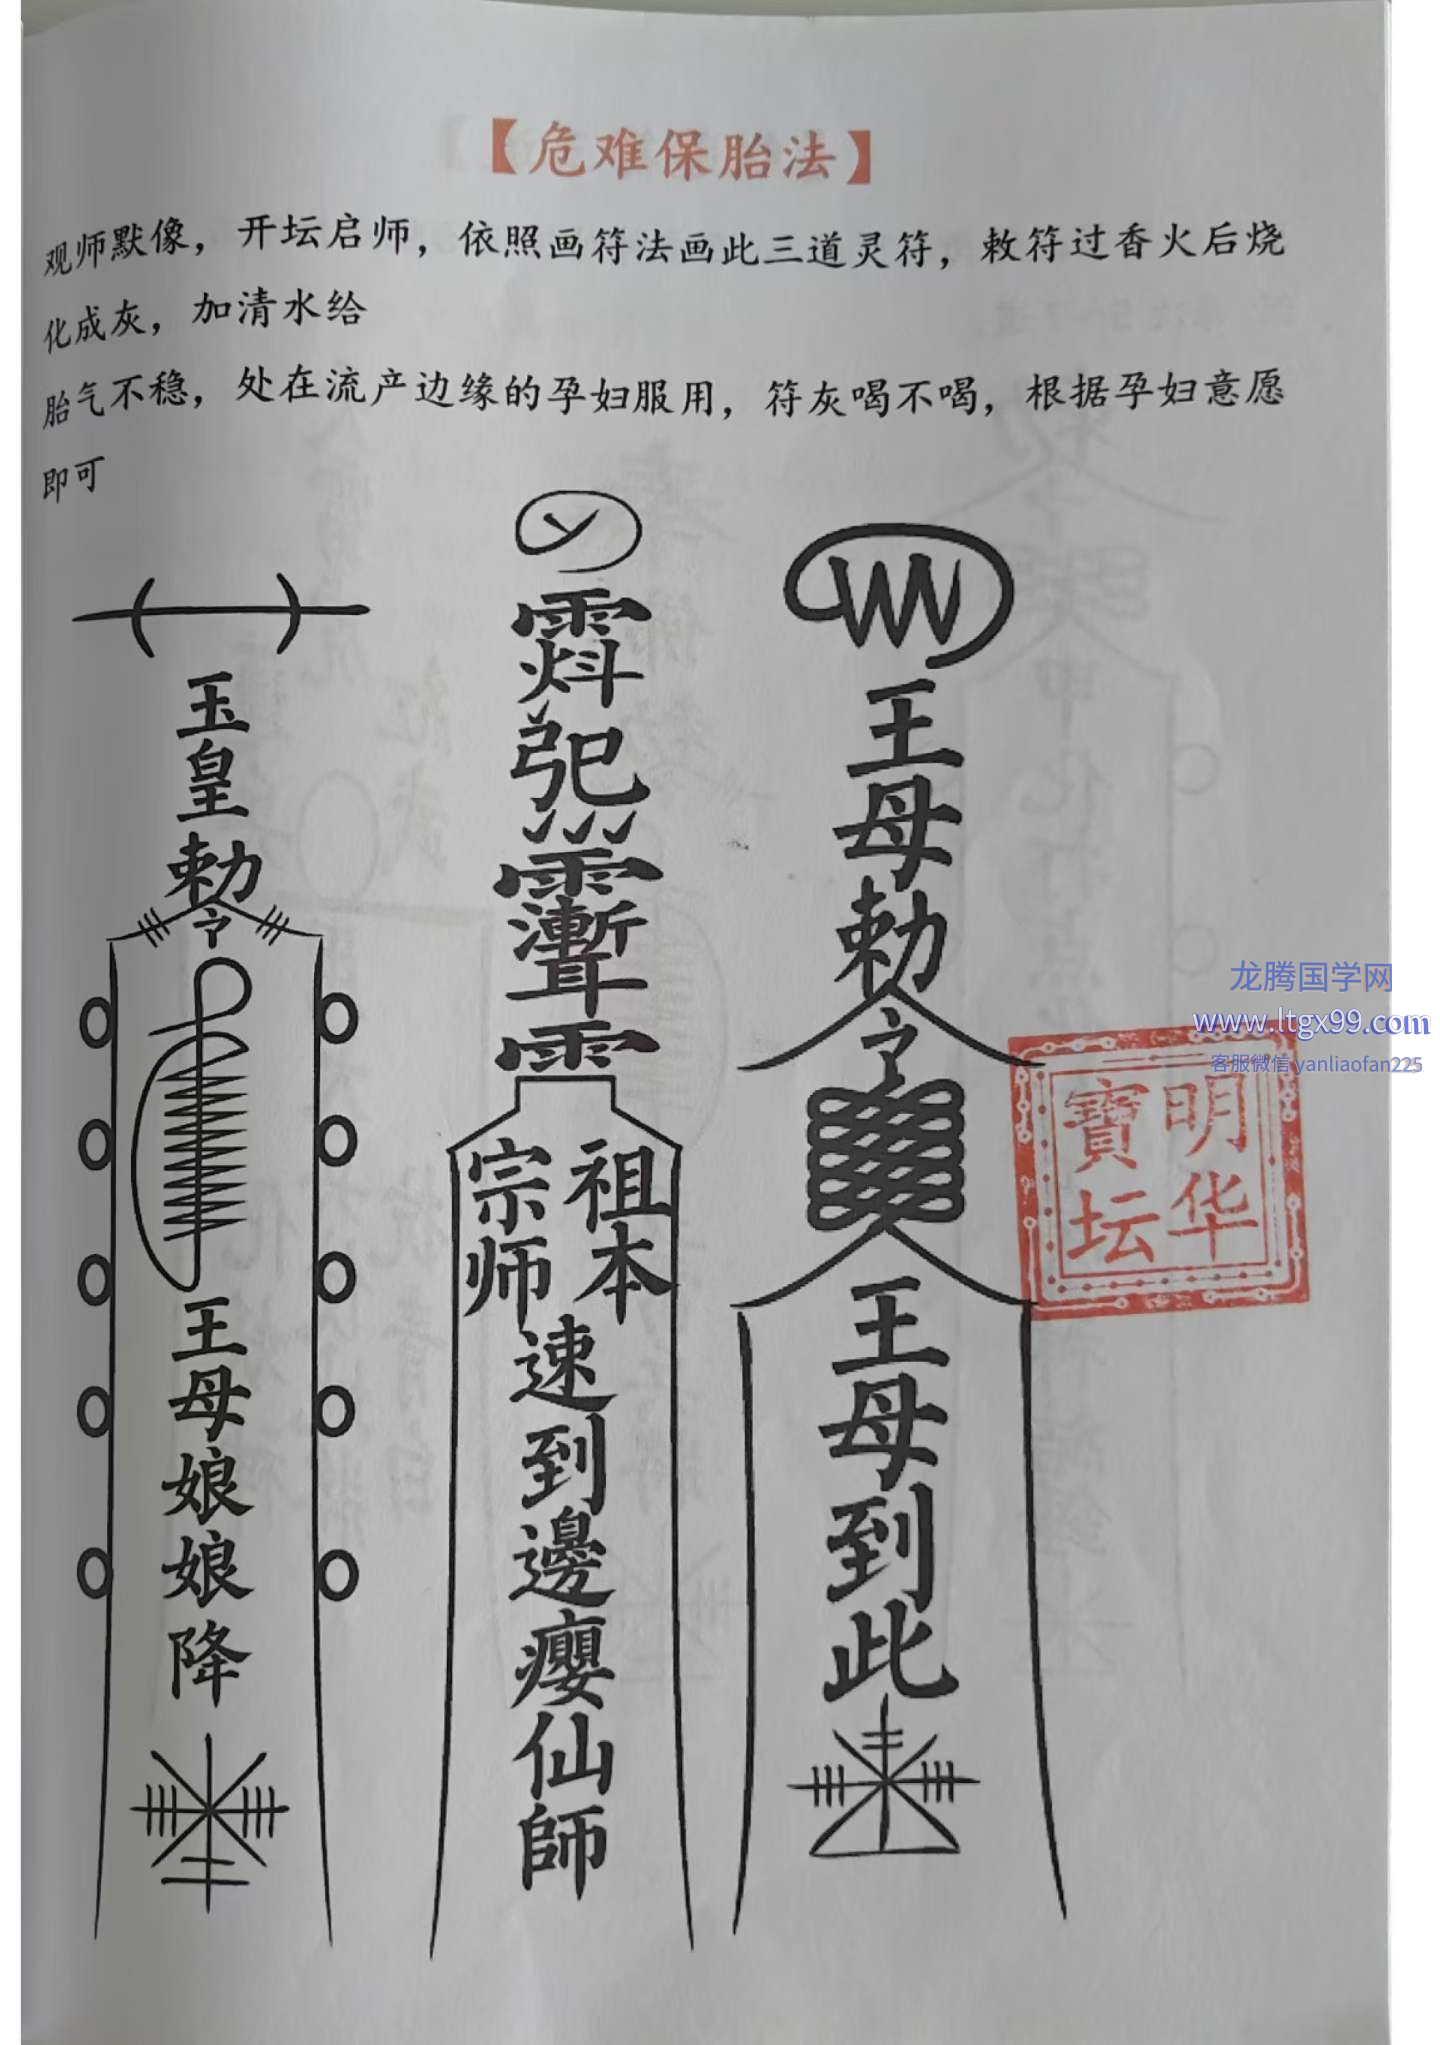 【危难保胎法】
观师默像，开坛启师，依照画符法画此三道灵符，敕符过香火后烧
化成灰，加清水给
胎气不稳，处在流产边缘的孕妇服用，符灰喝不喝，根据孕妇意愿
即可
玉皇勅令
王母娘娘降
祖本
宗师
速到邊癭仙師
王母勅令
王母到此
龙腾国学网
www.ltgx99.com
客服微信 yanliaofan225
明华
寶坛